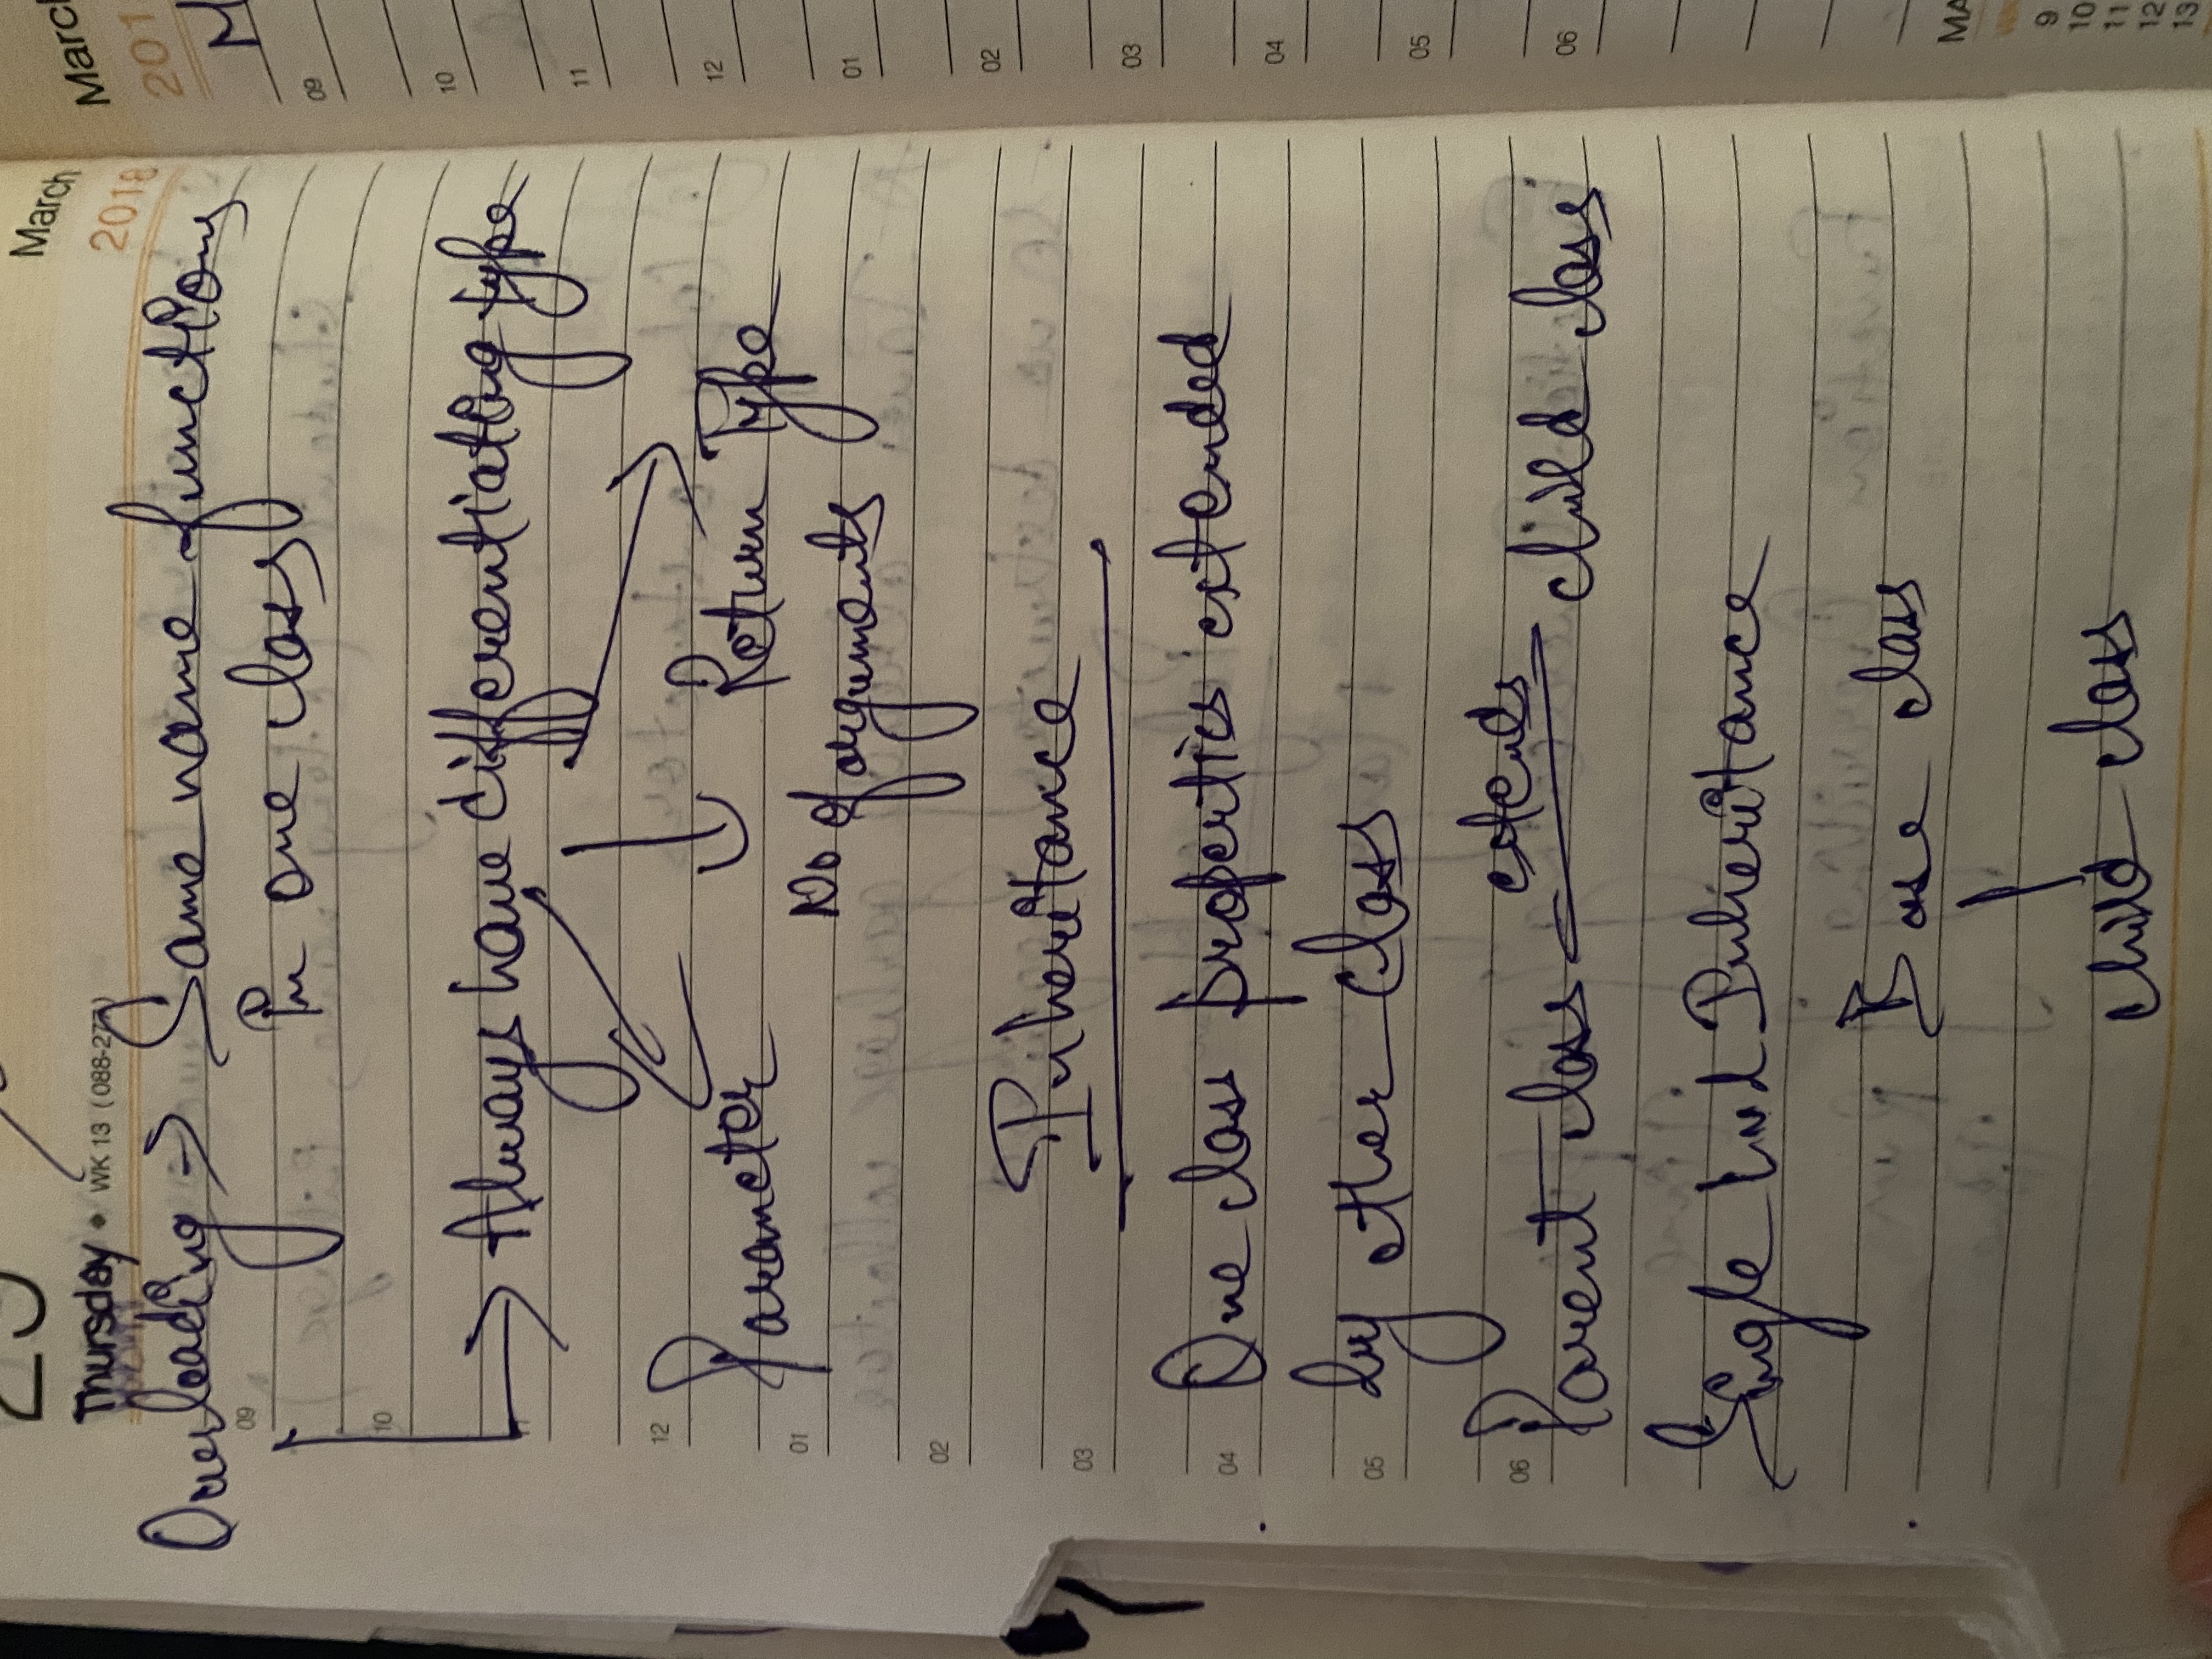 29
March
Thursday • WK 13 (088-277)
2018
Overloading → Same name functions
09
In one class
10
→ Always have differentiating type
11
12
Parameter
Return Type
01
No of arguments
02
Inheritance
03
One class properties extended
04
by other class
05
extends
06
Parent class child class
Single Lvel Inheritance
Base class
child class
March
201
M
09
10
11
12
01
02
03
04
05
06
MA
9
10
11
12
13